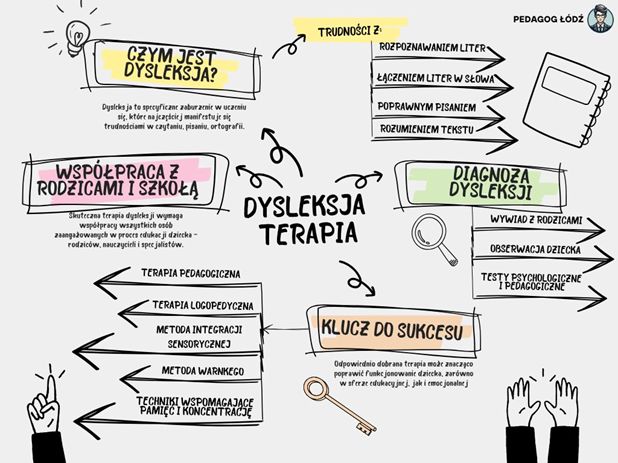 PEDAGOG ŁÓDŹ
CZYM JEST
DYSLEKSJA?
Dysleksja to specyficzne zaburzenie w uczeniu
się, które najczęściej manifestuje się
trudnościami w czytaniu, pisaniu, ortografii.
TRUDNOŚCI Z:
ROZPOZNAWANIEM LITER
ŁĄCZENIEM LITER W SŁOWA
POPRAWNYM PISANIEM
ROZUMIENIEM TEKSTU
WSPÓŁPRACA Z
RODZICAMI I SZKOŁĄ
Skuteczna terapia dysleksji wymaga
współpracy wszystkich osób
zaangażowanych w proces edukacji dziecka –
rodziców, nauczycieli i specjalistów.
DYSLEKSJA
TERAPIA
DIAGNOZA
DYSLEKSJI
WYWIAD Z RODZICAMI
OBSERWACJA DZIECKA
TESTY PSYCHOLOGICZNE
I PEDAGOGICZNE
KLUCZ DO SUKCESU
Odpowiednio dobrana terapia może znacząco
poprawić funkcjonowanie dziecka, zarówno
w sferze edukacyjnej, jak i emocjonalnej
TERAPIA PEDAGOGICZNA
TERAPIA LOGOPEDYCZNA
METODA INTEGRACJI
SENSORYCZNEJ
METODA WARNKEGO
TECHNIKI WSPOMAGAJĄCE
PAMIĘĆ I KONCENTRACJĘ